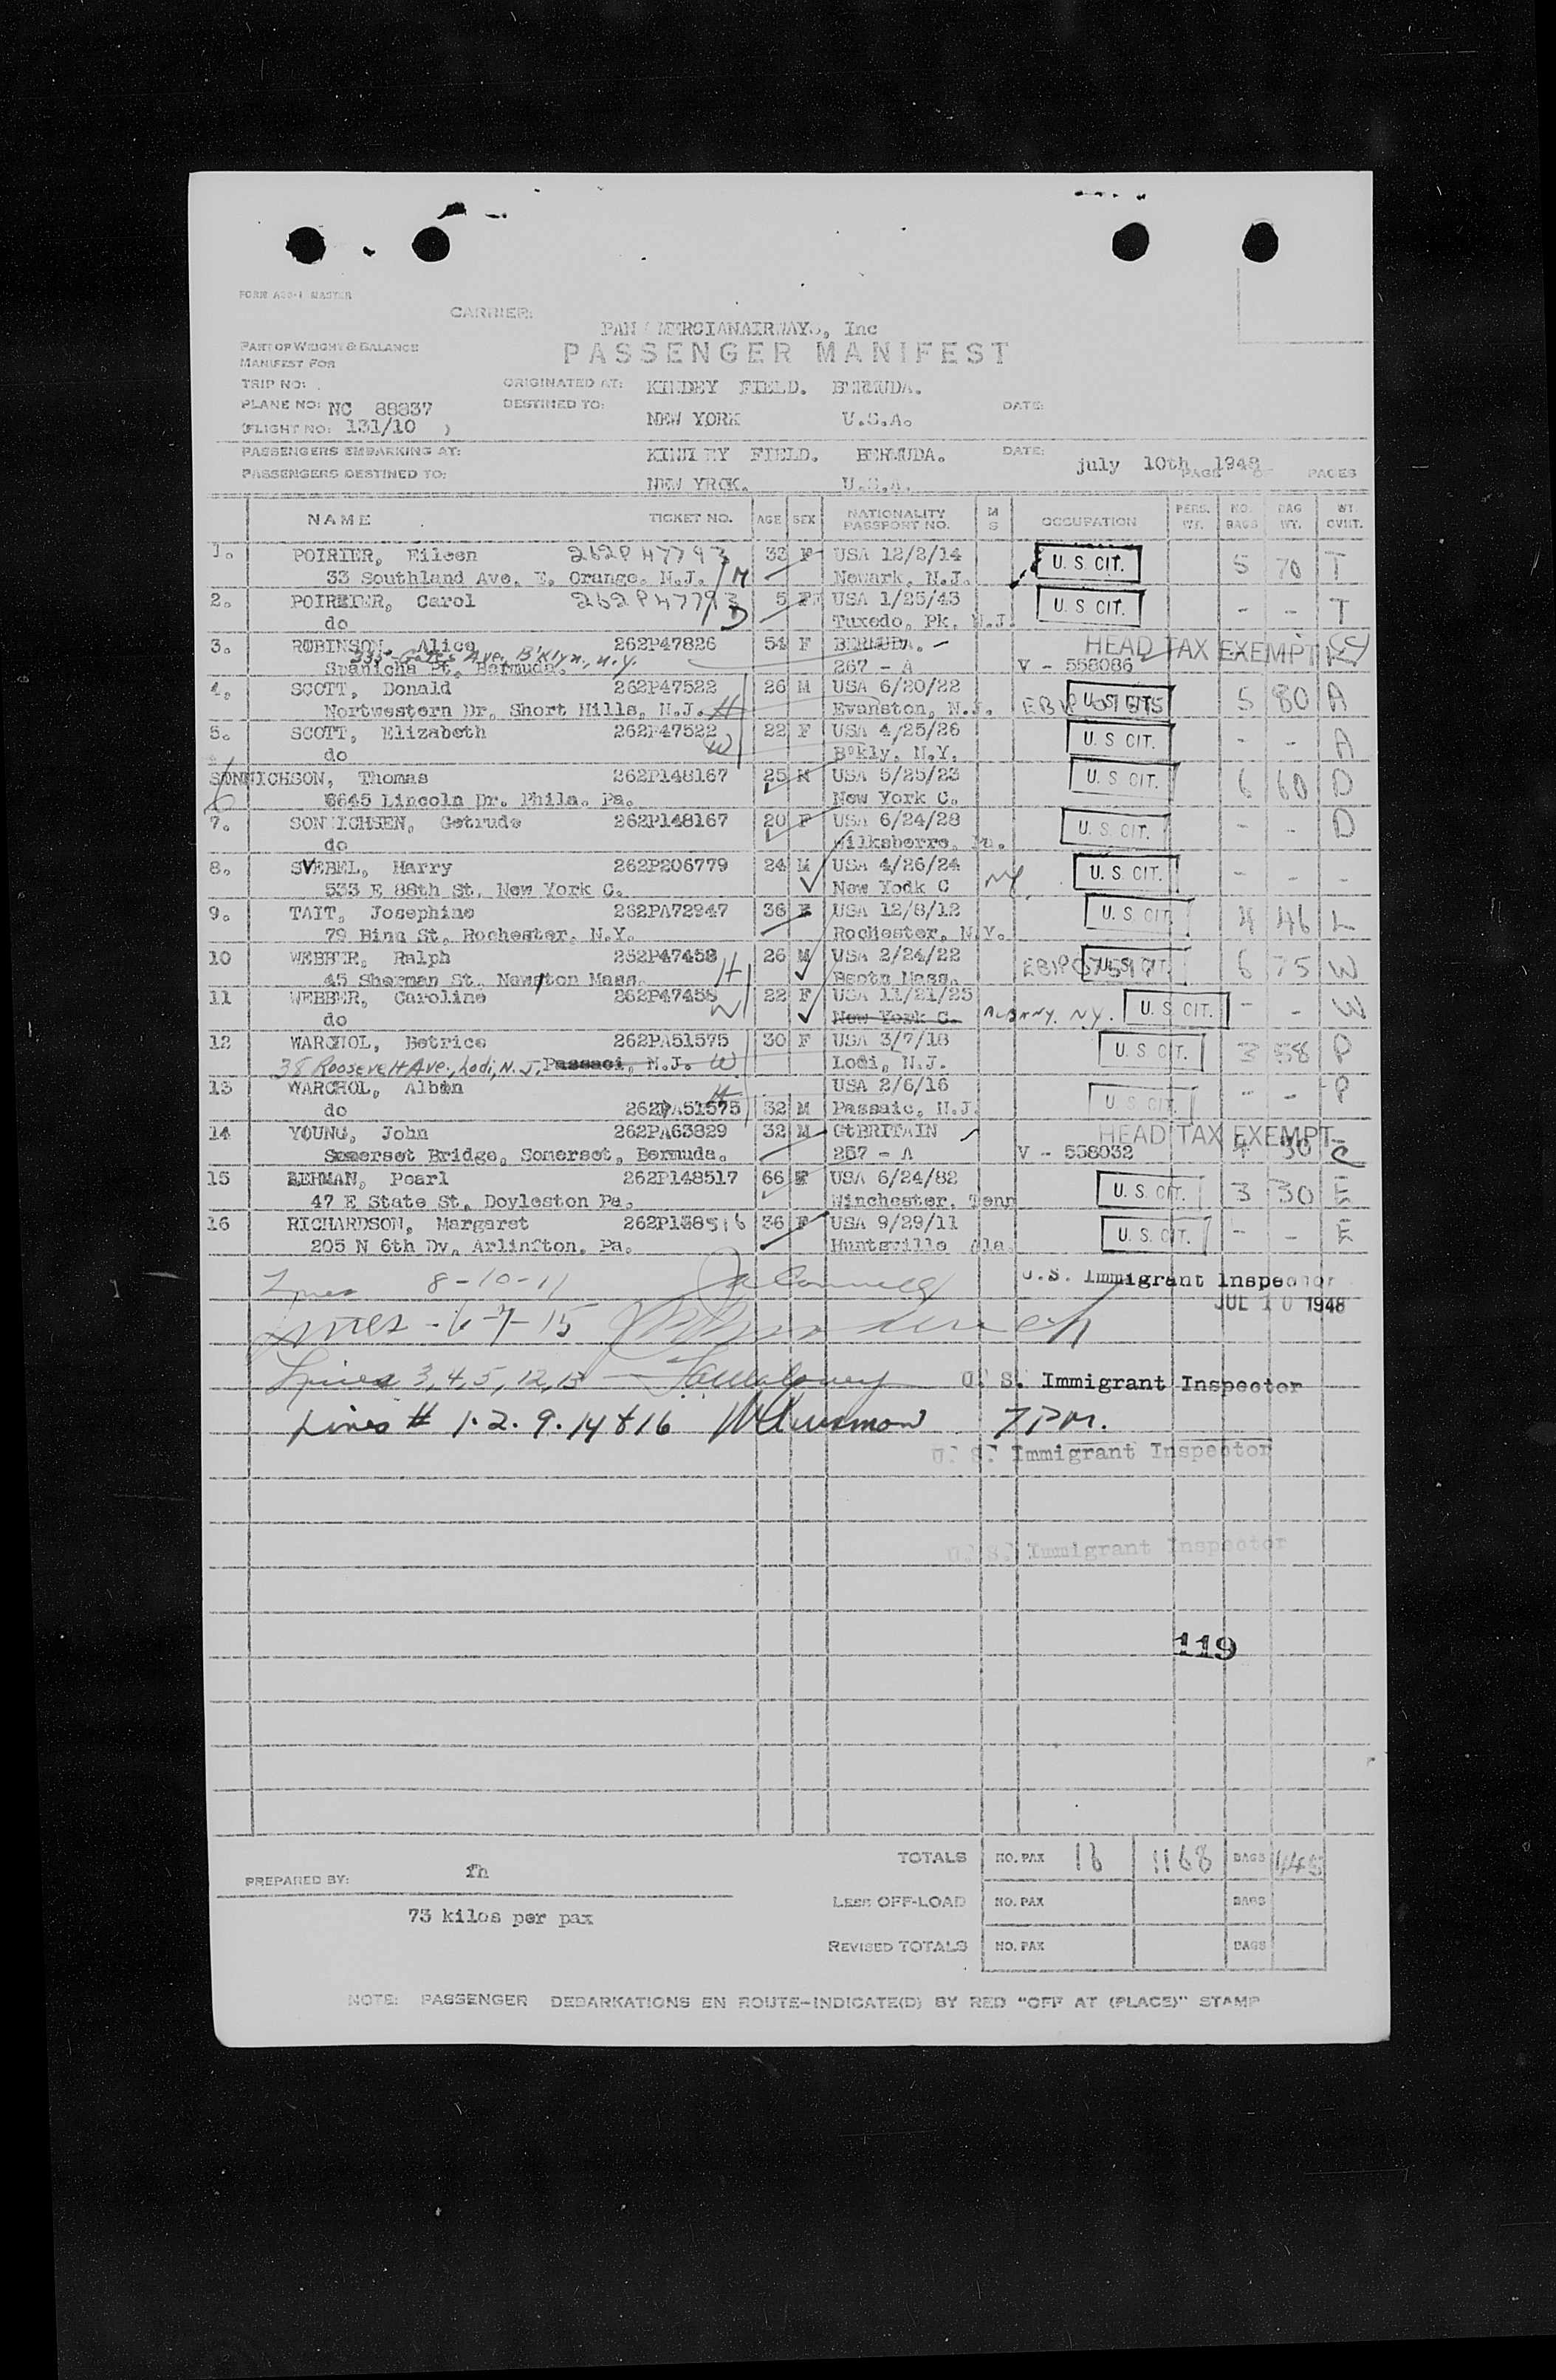 FORM ACC-1 MASTER
CARRIER:
PAN MERCIANAIRWAYS, Inc
PART OF WEIGHT & BALANCE
PASSENGER MANIFEST
MANIFEST FOR
TRIP NO: ORIGINATED AT: KINDEY FIELD. BERMUDA.
PLANE NO: NC 88837 DESTINED TO: NEW YORK U.S.A. DATE:
(FLIGHT NO: 131/10 )
PASSENGERS EMBARKING AT: KINDLEY FIELD. BERMUDA. DATE: july 10th 1948
PASSENGERS DESTINED TO: NEW YROK. U.S.A. PAGE OF PAGES
NAME TICKET NO. AGE SEX NATIONALITY PASSPORT NO. M S OCCUPATION PERS. WT. NO. BAGS BAG WT. WT. OVHT.
1. POIRIER, Eileen 262P47793 33 F USA 12/2/14 U. S CIT. 5 70 T
33 Southland Ave. E. Orange. N.J. M Newark, N.J.
2. POIRIER, Carol 262P47793 5 F USA 1/25/43 U. S CIT. - - T
do D Tuxedo, Pk, N.J.
3. ROBINSON. Alice 262P47826 54 F BERMUDA. HEAD TAX EXEMPT
335 Gates Ave, B'Klyn, N.Y.
Spanichs Pt. Bermuda. 267 - A V - 558086
4. SCOTT, Donald 262P47522 26 M USA 6/20/22 U. S CIT. 5 80 A
Nortwestern Dr, Short Hills, N.J. H Evanston, N.J.
5. SCOTT, Elizabeth 262P47522 22 F USA 4/25/26 U. S CIT. - - A
do W Bokly, N.Y.
SONNICHSON, Thomas 262P148167 25 M USA 5/25/23 U. S CIT. 6 60 D
6 8645 Lincoln Dr. Phila. Pa. New York C.
7. SONNICHSEN, Getrude 262P148167 20 F USA 6/24/28 U. S CIT. - - D
do Wilksberre, Pa.
8. SVEBEL, Harry 262P206779 24 M USA 4/26/24 U. S CIT. - - -
533 E 88th St. New York C. New Yodk C NY.
9. TAIT, Josephine 262PA72947 36 F USA 12/8/12 U. S CIT. 4 46 L
79 Bing St. Rochester. N.Y. Rochester, N.Y.
10 WEBBER, Ralph 262P47458 26 M USA 2/24/22 U.S. CIT. 6 75 W
45 Sherman St. Newton Mass. H Bsotn Mass.
11 WEBBER, Caroline 262P47458 22 F USA 11/21/25 U. S. CIT. - - W
do W New York C. ALBANY. NY.
12 WARCHOL, Betrice 262PA51575 30 F USA 3/7/18 U. S CIT. 3 58 P
38 Roosevelt Ave., Lodi, N.J. Passaci, N.J. W Lodi, N.J.
13 WARCHOL, Albin H USA 2/6/16 U. S CIT. - - P
do 262PA51575 32 M Passaic, N.J.
14 YOUNG, John 262PA63829 32 M GtBRITAIN HEAD TAX EXEMPT 4 30 C
Somerset Bridge, Somerset, Bermuda. 257 - A V - 558032
15 LEHMAN, Pearl 262P148517 66 F USA 6/24/82 U. S. CIT. 3 30 E
47 E State St. Doyleston Pa. Winchester, Tenn
16 RICHARDSON, Margaret 262P138516 36 F USA 9/29/11 U. S. CIT. - - E
205 N 6th Dv. Arlinfton. Pa. Huntsville Ala.
Lines 8-10-11 U.S. Immigrant Inspector
JUL 10 1948
Lines - 6-7-15
Lines 3, 4, 5, 12, 13 U. S. Immigrant Inspector
Lines # 1. 2. 9. 14 & 16 7 P.M.
U. S. Immigrant Inspector
U. S. Immigrant Inspector
119
TOTALS NO. PAX 16 1168 BAGS
PREPARED BY: fh
LESS OFF-LOAD NO. PAX BAGS
73 kilos per pax
REVISED TOTALS NO. PAX BAGS
NOTE: PASSENGER DEBARKATIONS EN ROUTE-INDICATE(D) BY RED "OFF AT (PLACE)" STAMP